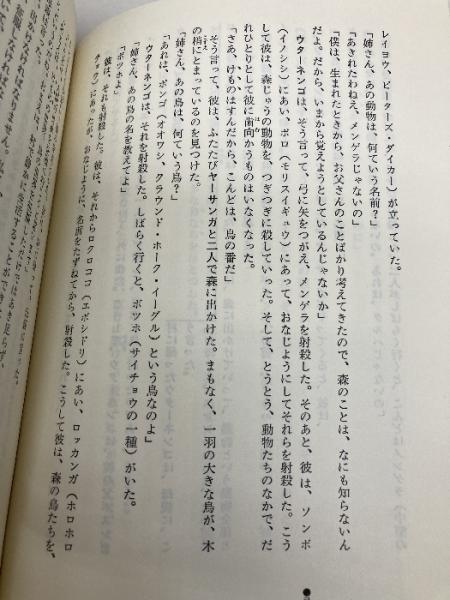 レイヨウ、ピーターズ・ダイカー)が立っていた。
「姉さん、あの動物は、何ていう名前？」
「あきれたわねえ、メンゲラじゃないの」
「僕は、生まれたときから、お父さんのことばかり考えてきたので、森のことは、なにも知らないん
だよ。だから、いまから覚えようとしているんじゃないか」
ウターネンゴは、そう言って、弓に矢をつがえ、メンゲラを射殺した。そのあと、彼は、ソンボ
(イノシシ)にあい、ボロ(モリスイギュウ)にあって、おなじようにしてそれらを射殺した。こう
して彼は、森じゅうの動物を、つぎつぎに殺していった。そして、とうとう、動物たちのなかで、だ
れひとりとして彼に歯向かうものはいなくなった。
「さあ、けものはすんだから、こんどは、鳥の番だ」
そう言って、彼は、ふたたびヤーサンガと二人で森に出かけた。まもなく、一羽の大きな鳥が、木
の梢にとまっているのを見つけた。
「姉さん、あの鳥は、何ていう鳥？」
「あれは、ポンゴ(オオワシ、クラウンド・ホーク・イーグル)という鳥なのよ」
ウターネンゴは、それを射殺した。しばらく行くと、ボツホ(サイチョウの一種)がいた。
「姉さん、あの鳥の名を教えてよ」
「ボツホよ」
彼は、それも射殺した。彼は、それからロクロココ(エボシドリ)にあい、ロッカンガ(ホロホロ
チョウ)にあったが、おなじように、名前をたずねてから、射殺した。こうして彼は、森の鳥たちを、